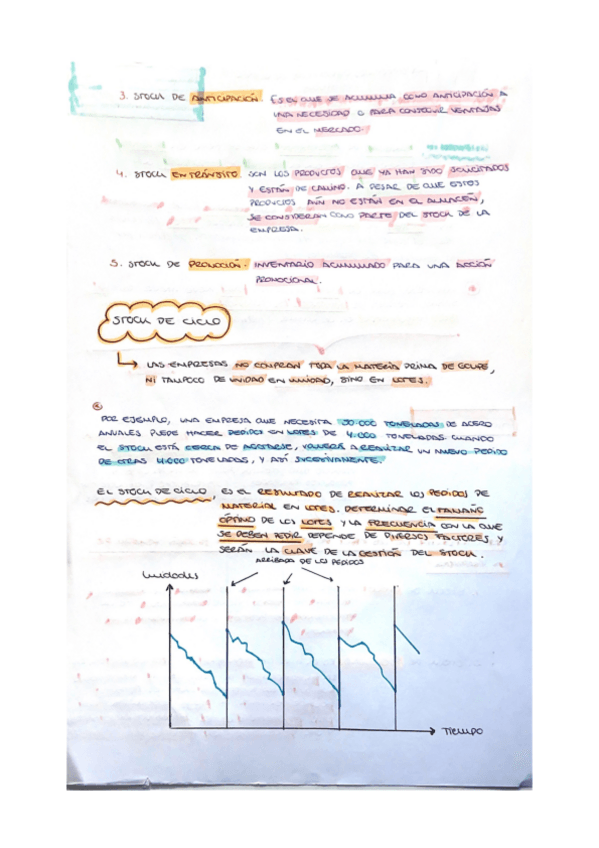 3. STOCK DE ANTICIPACIÓN. ES EN QUE SE ACUMULA COMO ANTICIPACIÓN A
UNA NECESIDAD O PARA CONSEGUIR VENTAJAS
EN EL MERCADO.
4. STOCK EN TRÁNSITO. SON LOS PRODUCTOS QUE YA HAN SIDO SOLICITADOS
Y ESTÁN DE CAMINO. A PESAR DE QUE ESTOS
PRODUCTOS AÚN NO ESTÁN EN EL ALMACÉN,
SE CONSIDERAN COMO PARTE DEL STOCK DE LA
EMPRESA.
5. STOCK DE PROMOCIÓN. INVENTARIO ACUMULADO PARA UNA ACCIÓN
PROMOCIONAL.
STOCK DE CICLO
LAS EMPRESAS NO COMPRAN TODA LA MATERIA PRIMA DE GOLPE,
NI TAMPOCO DE UNIDAD EN UNIDAD, SINO EN LOTES.
POR EJEMPLO, UNA EMPRESA QUE NECESITA 50.000 TONELADAS DE ACERO
ANUALES PUEDE HACER PEDIDOS EN LOTES DE 4.000 TONELADAS. CUANDO
EL STOCK ESTÁ CERCA DE AGOTARSE, VOLVERÁ A REALIZAR UN NUEVO PEDIDO
DE OTRAS 4.000 TONELADAS, Y ASÍ SUCESIVAMENTE.
EL STOCK DE CICLO, ES EL RESULTADO DE REALIZAR LOS PEDIDOS DE
MATERIAL EN LOTES. DETERMINAR EL TAMAÑO
ÓPTIMO DE LOS LOTES Y LA FRECUENCIA CON LA QUE
SE DEBEN PEDIR DEPENDE DE DIVERSOS FACTORES, Y
SERÁN LA CLAVE DE LA GESTIÓN DEL STOCK.
ARRIBADA DE LOS PEDIDOS
Unidades
Tiempo